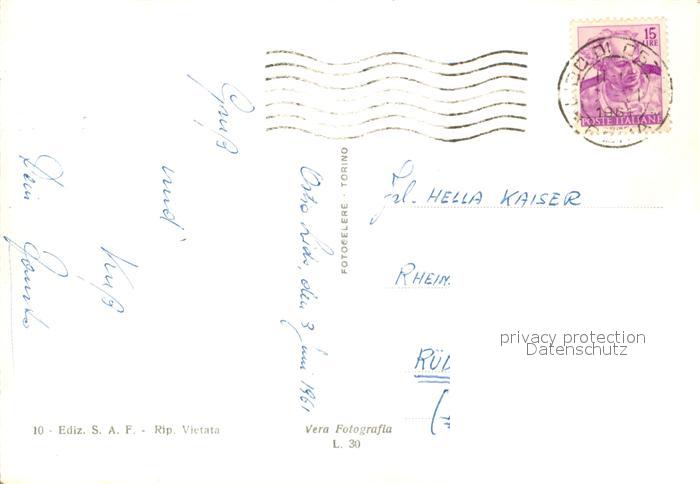 15
LIRE
POSTE ITALIANE
LIDO DI OS
1961
Gruß
und
Kuß
Dein
Ostia Lido, den 3 Juni 1961
FOTOCELERE · TORINO
Frl. HELLA KAISER
RHEIN.
RÜD
privacy protection
Datenschutz
10 - Ediz. S. A. F. - Rip. Vietata
Vera Fotografia
L. 30